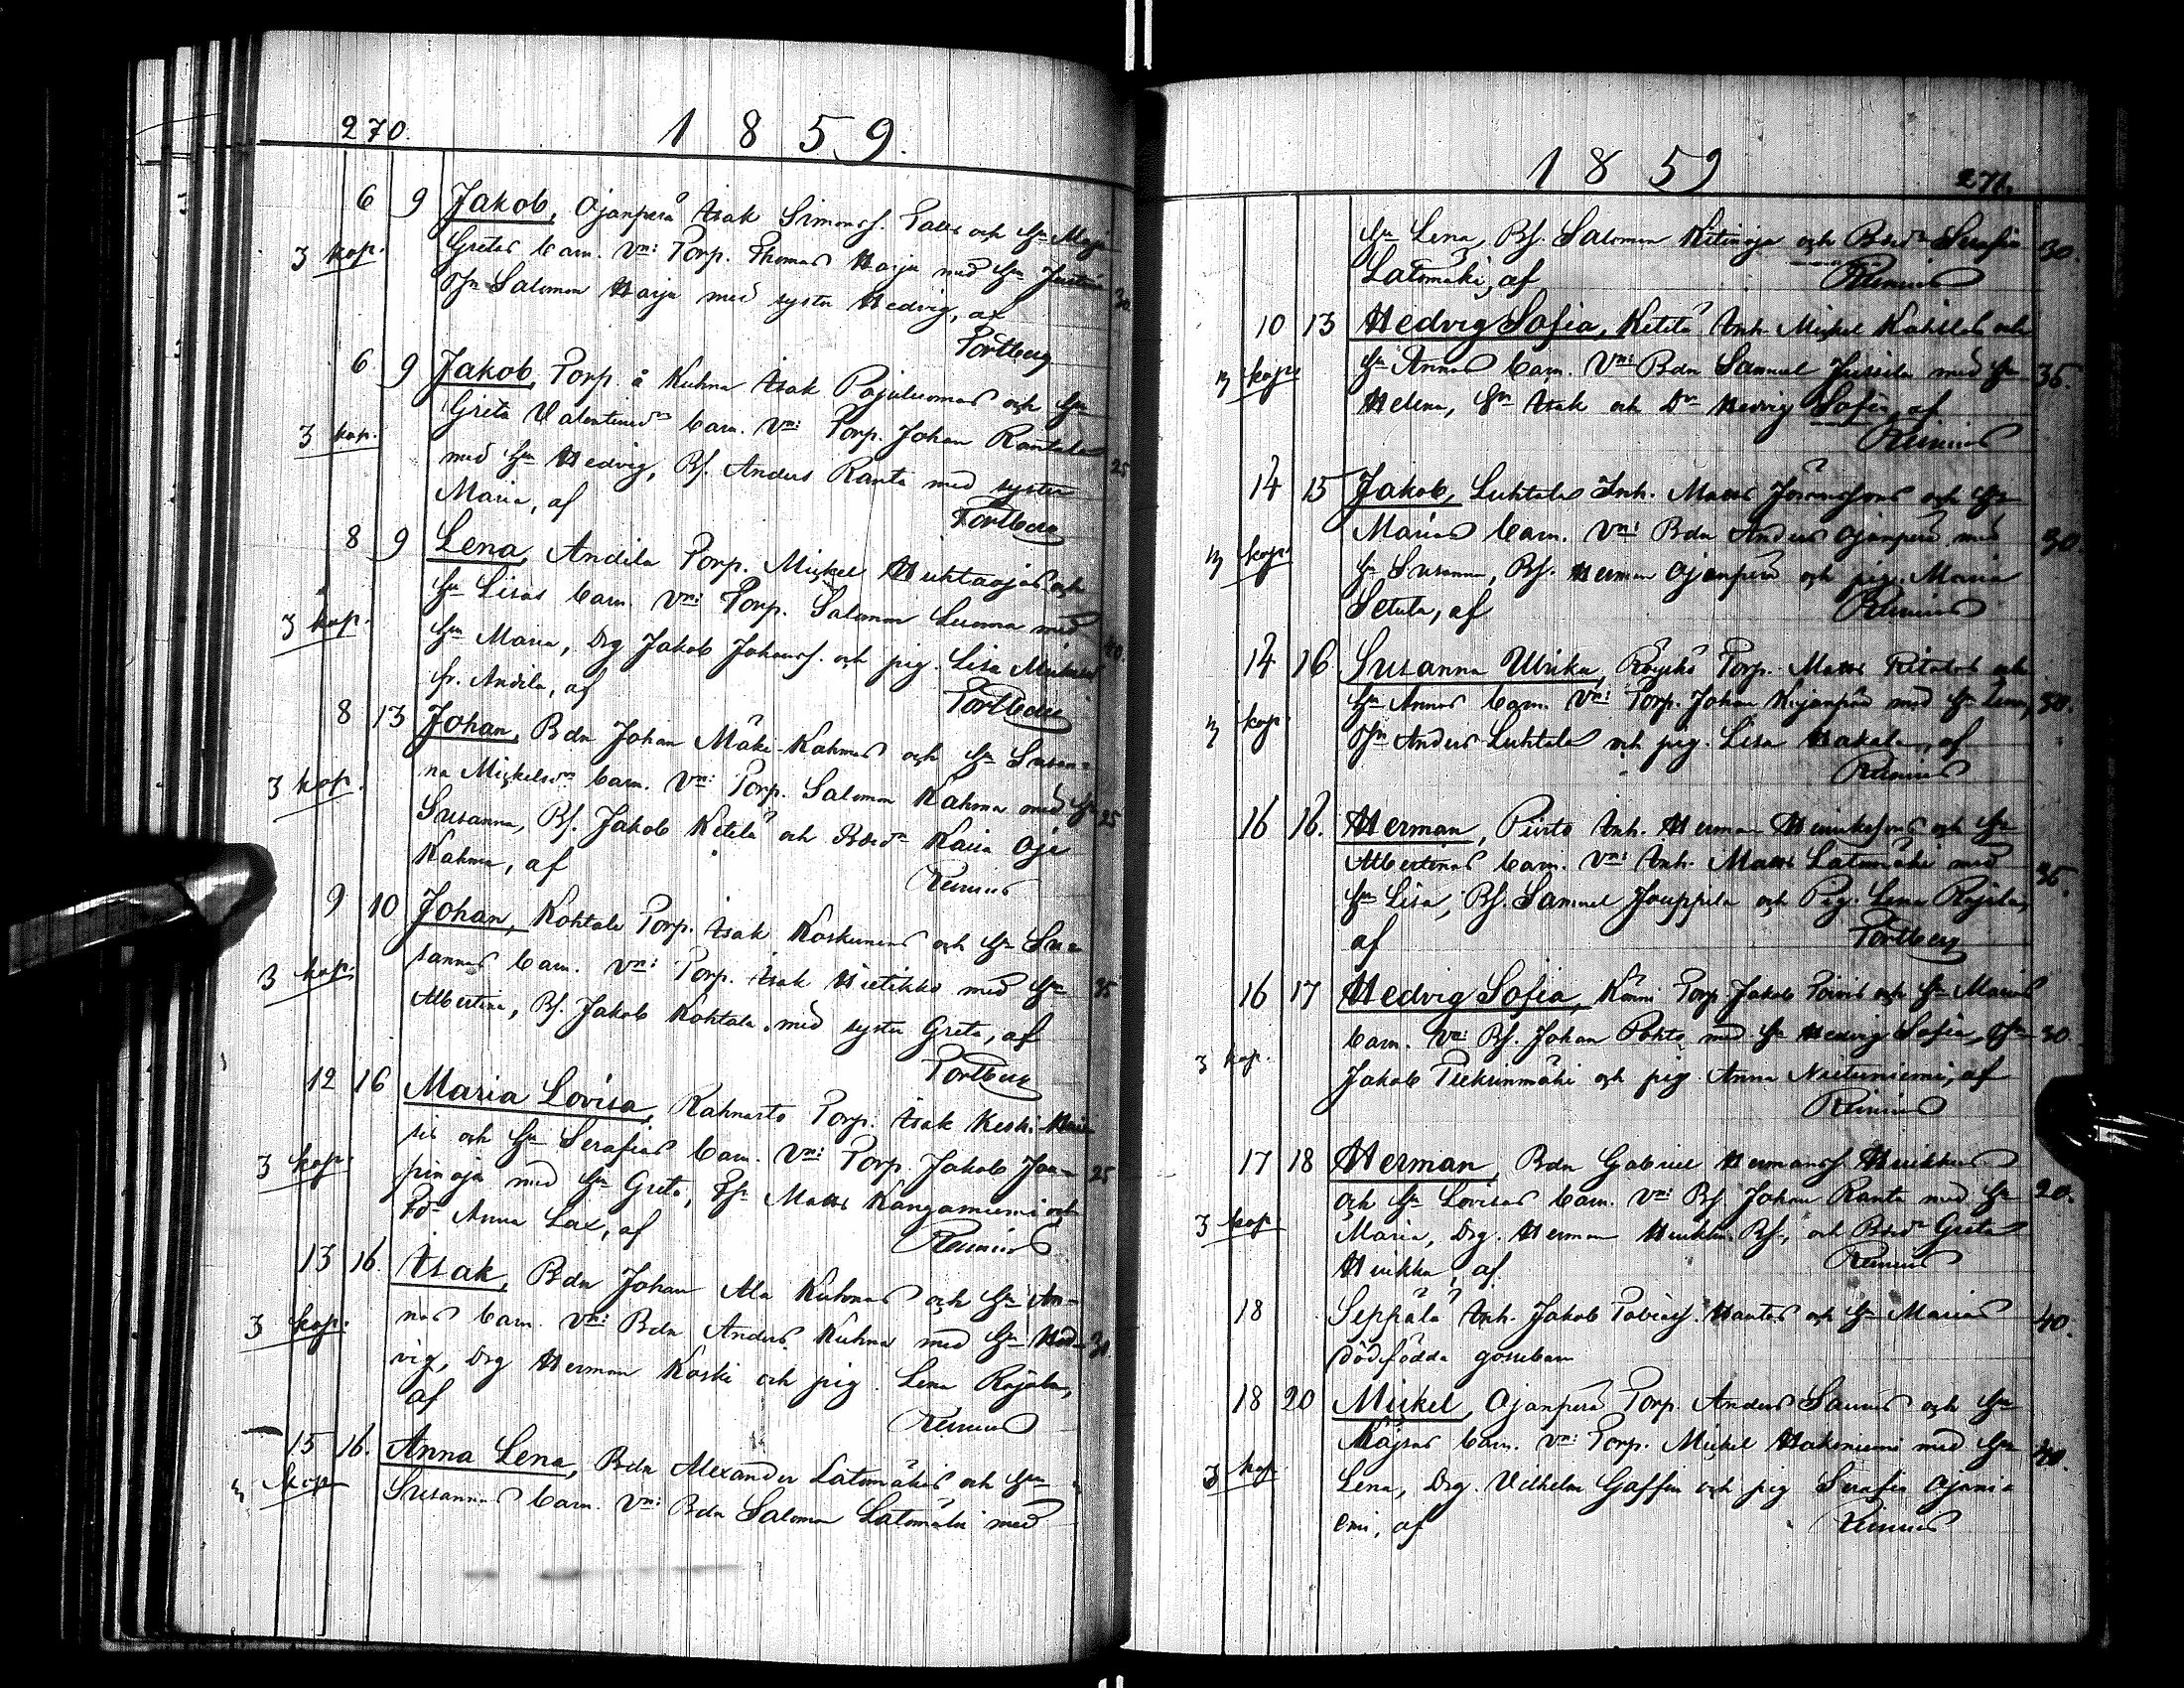 270.
1859.
6 9 Jakob, Ojanperä Isak Simonss. Palus och Hu Maja
Gretas barn. Vn: Torp. Thomas Harju med Hu Justina 30.
3 kop.
Dr. Salomon Harju med syster Hedvig, af
Portberg
6 9 Jakob, Torp. å Kuhna Isak Pajuluomas och Hu
Greta Valentinsdr barn. Vn: Torp. Johan Rantala 25
3 kop.
med Hu Hedvig, Bs. Anders Ranta med syster
Maria, af
Portberg
8 9 Lena, Andila Torp. Mickel Huhtaojas och
Hu Lisas barn. Vn: Torp. Salomon Luoma med 40.
3 kop.
Hu Maria, Drg Jakob Johanss. och pig. Lisa
fr. Andila, af
Portberg
8 13 Johan, Bdn Johan Mäki-Kahmas och Hu Susan-
na Mickelsdr barn. Vn: Torp. Salomon Kahma med Hu 25
3 kop.
Susanna, Bs. Jakob Ketelä och Bdr Kaisa Oja
Kahma, af
Reinius
9 10 Johan, Kohtala Torp. Isak Koskinens och Hu Su-
sannas barn. Vn: Torp. Isak Hietikko med Hu 35
3 kop.
Albertina, Bs. Jakob Kohtala med syster Greta, af
Portberg
12 16 Maria Lovisa, Rahnasto Torp. Isak Keski-
sis och Hu Serafias barn. Vn: Torp. Jakob Jou- 25
3 kop.
pinoja med Hu Greta, Matts Kangasniemi och
Anna Lax, af
Reinius
13 16. Isak, Bdn Johan Ala Kuhnas och Hu An-
nas barn. Vn: Bdn Anders Kuhna med Hu Hed- 30
3 kop.
vig, Drg Herman Koski och pig. Lena Rajala,
af
Reinius
15 16. Anna Lena, Bdn Alexander Latomäkis och Hu
3 kop
Susannas barn. Vn: Bdn Salomon Latomäki med
1859
271.
Hu Lena, Bs. Salomon Kitinoja och Bdr Serafia 30.
Latomäki, af
Reinius
10 13 Hedvig Sofia, Ketelä Inh. Mickel och
3 kop.
Hu Annas barn. Vn: Bdn Samuel Jussila med Hu 35.
Helena, Sn Isak och Dr Hedvig Sofia, af
Reinius
14 15 Jakob, Luhtala Inh. Matts och Hu
Marias barn. Vn: Bdn Anders Ojanperä med 30.
3 kop.
Hu Susanna, Bs. Herman Ojanperä och pig. Maria
Setula, af
Reinius
14 16 Susanna Ulrika, Röyskö Torp. Matts och
Hu Annas barn. Vn: Torp. Johan Kujanpää med Hu Lena, 30.
3 kop.
Anders Luhtala och pig. Lisa Hakala, af
Reinius
16 16. Herman, Puirto Inh. Herman Henrikssons och Hu
Albertinas barn. Vn: Inh. Matts Latomäki med 35.
Hu Lisa, Bs. Samuel Jouppila och Pig. Lena Rajala,
af
Portberg
16 17 Hedvig Sofia, Könni Torp. Jakob och Hu Marias
3 kop.
barn. Vn: Bs. Johan Pohto med Hu Hedvig Sofia, 30
Jakob och pig Anna Nietuniemi, af
Reinius
17 18 Herman, Bdn Gabriel Hermanss. Heikkas
och Hu Lovisas barn. Vn: Bs Johan Ranta med Hu 20.
3 kop
Maria, Drg. Herman Heikka Bs, och Bdr Greta
Heikka, af
Reinius
18 Seppälä Inh. Jakob Tobiass. Hautas och Hu Marias 40.
dödfödda gossebarn
18 20 Mickel, Ojanperä Torp. Anders Sauris och Hu
Kajsas barn. Vn: Torp. Mickel Hakoniemi med Hu 40.
3 kop
Lena, Drg. Vilhelm Gaffin och pig Serafia Ojani-
emi, af
Reinius